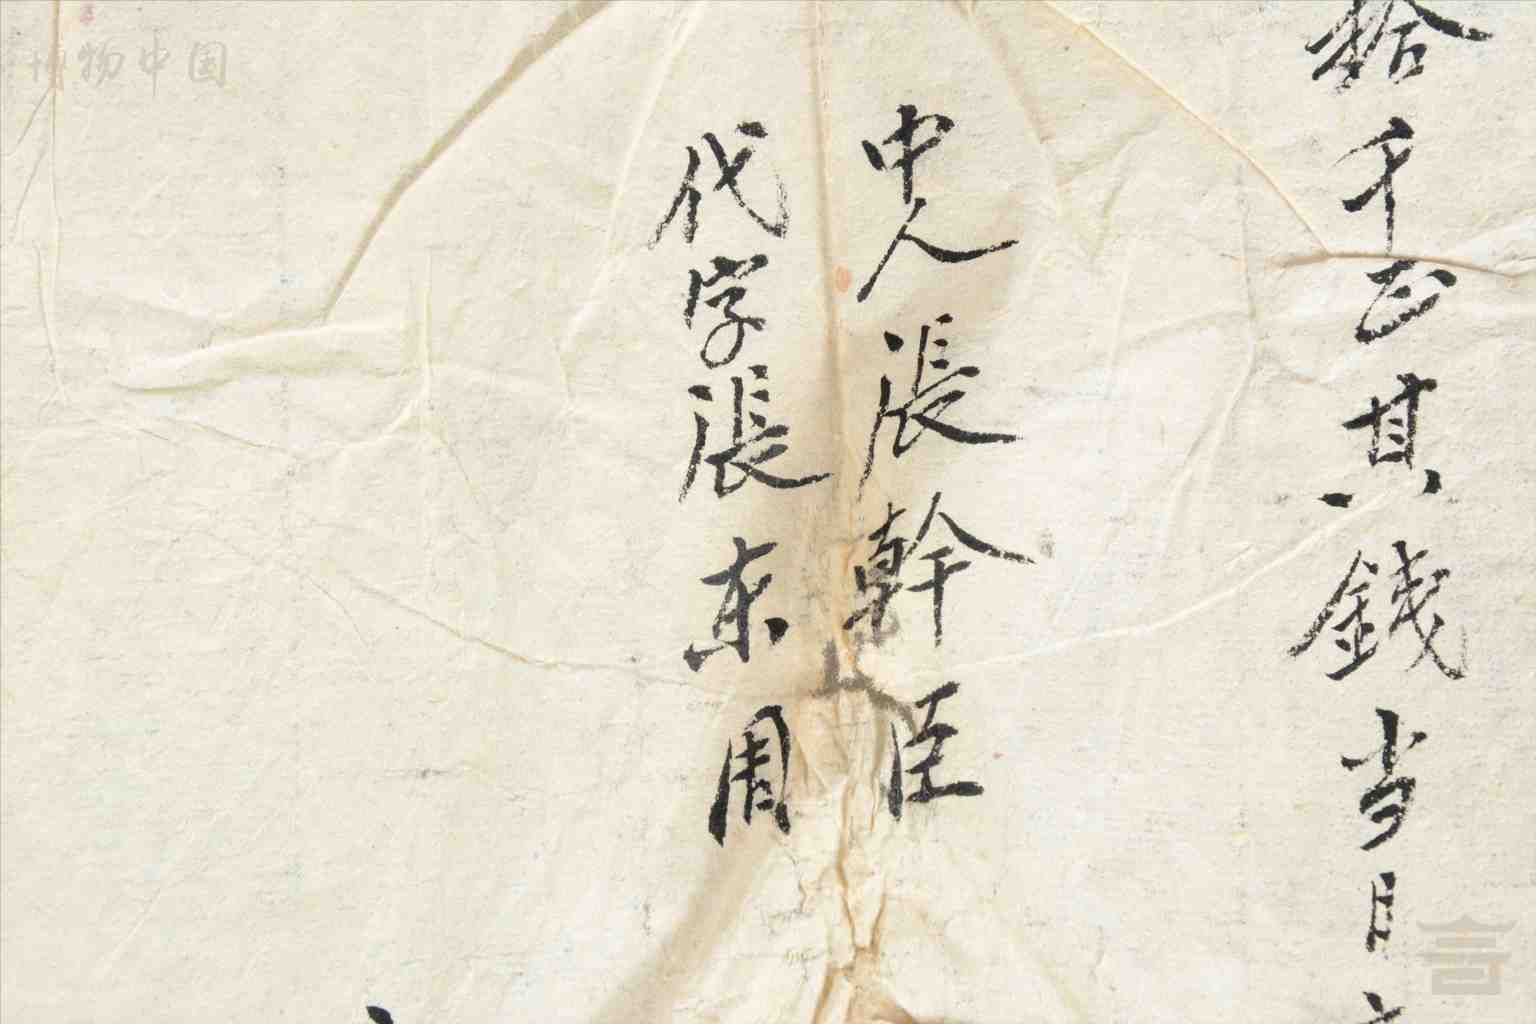 拾千正其錢当日
中人張幹臣
代字張东周
博物中国